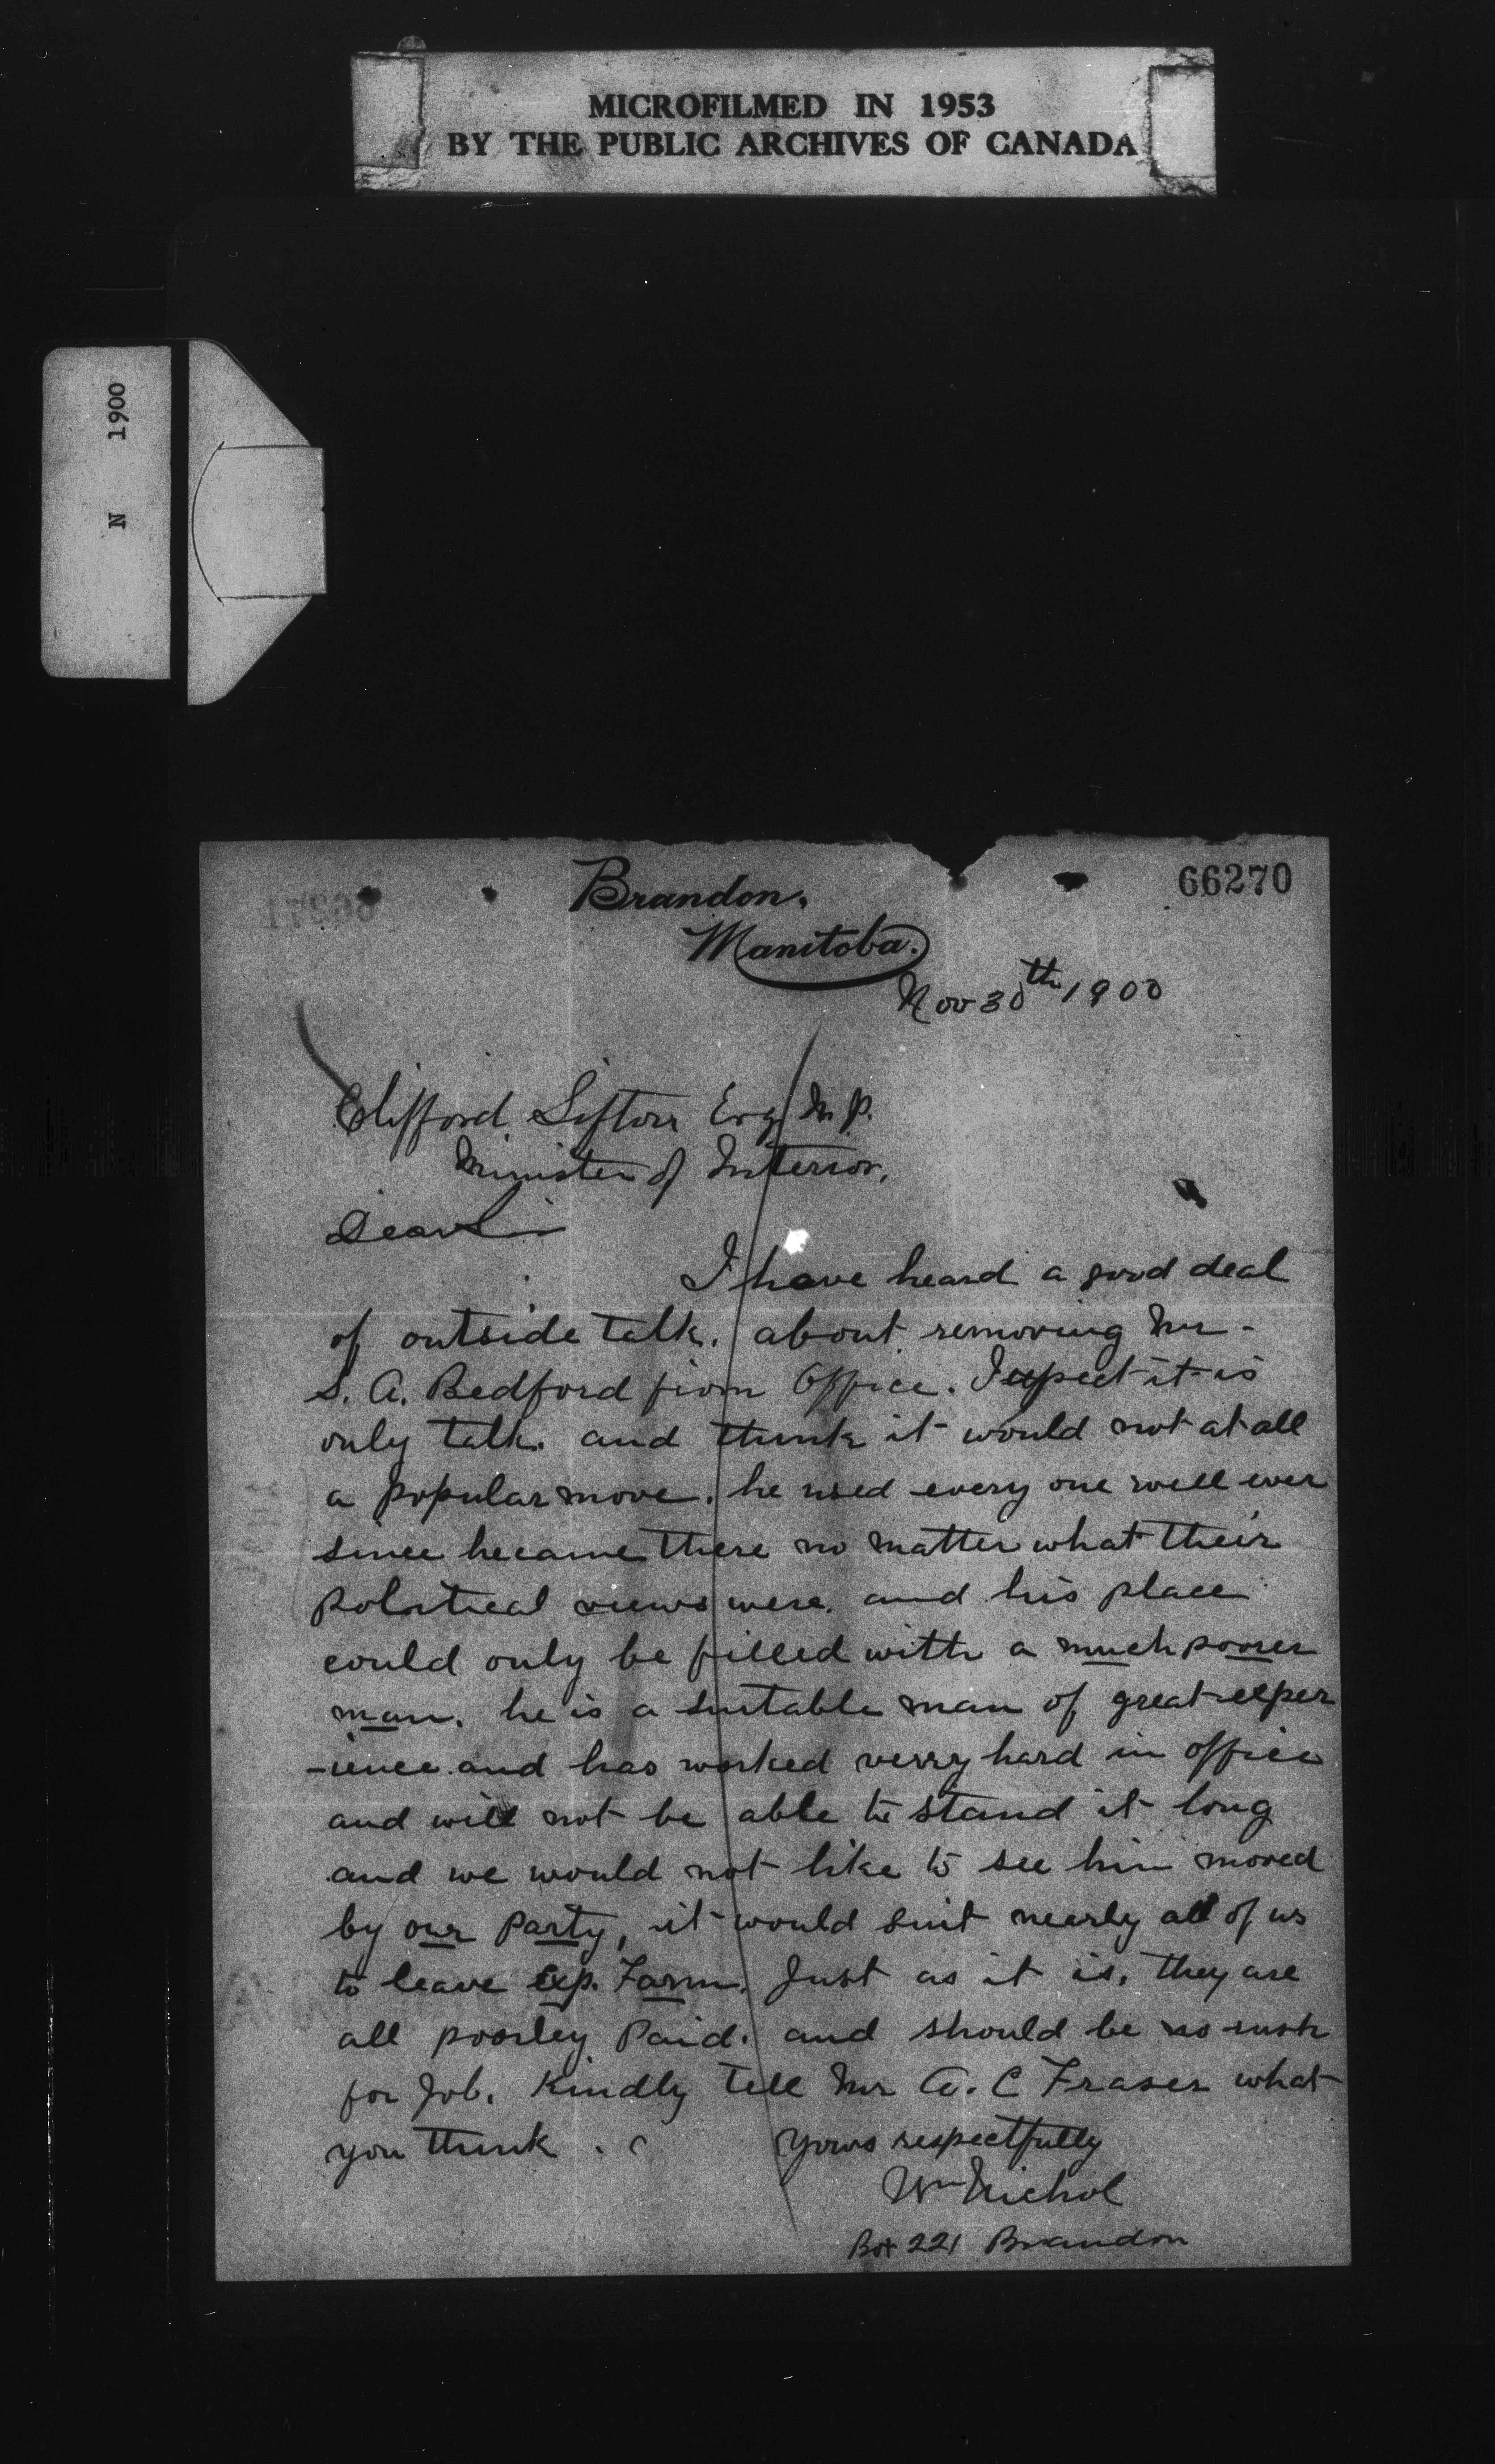 MICROFILMED IN 1953
BY THE PUBLIC ARCHIVES OF CANADA
N 1900
66270
Brandon,
Manitoba.
Nov 30th 1900
Clifford Sifton Esq M.P.
Minister of Interior,
Dear Sir
I have heard a good deal
of outside talk. about removing Mr.
S. A. Bedford from Office. I expect it is
only talk. and think it would not at all
a popular move. he used every one well ever
since he came there no matter what their
Polatical views were. and his place
could only be filled with a much poorer
man. he is a suitable man of great exper
-ience. and has worked verry hard in office
and will not be able to stand it long
and we would not like to see him moved
by our Party, it would suit nearly all of us
to leave Exp. Farm. Just as it is. they are
all poorley Paid. and should be no rush
for Job. Kindly tell Mr A. C Fraser what
you think.
Yours respectfully
Wm Nichol
Box 221 Brandon